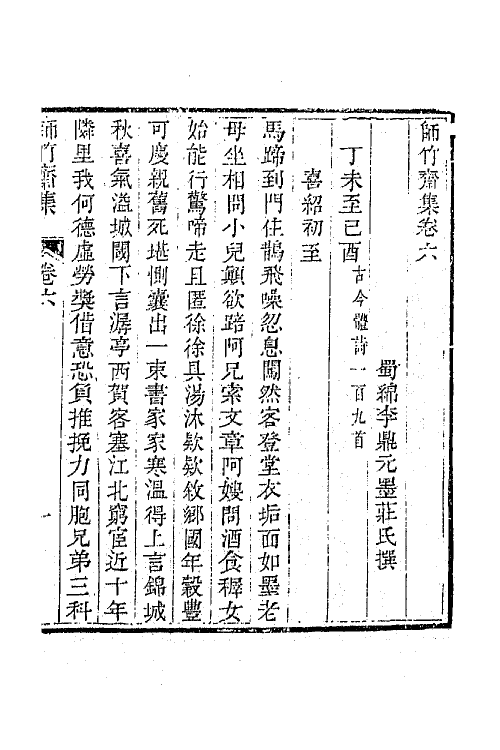 師竹齋集卷六
蜀綿李鼎元墨莊氏撰
丁未至己酉古今體詩一百九首
喜紹初至
馬蹄到門住鵲飛噪忽息闖然客登堂衣垢面如墨老
母坐相問小兒顛欲踣阿兄索文章阿嫂問酒食稺女
始能行驚啼走且匿徐徐具湯沐欵欵敘鄉國年穀豐
可慶親舊死堪惻囊出一束書家家寒溫得上言錦城
秋喜氣溢城閾下言潺亭西賀客塞江北窮宦近十年
隣里我何德虛勞獎借意恐負推挽力同胞兄弟三科
師竹齋集
卷六
一